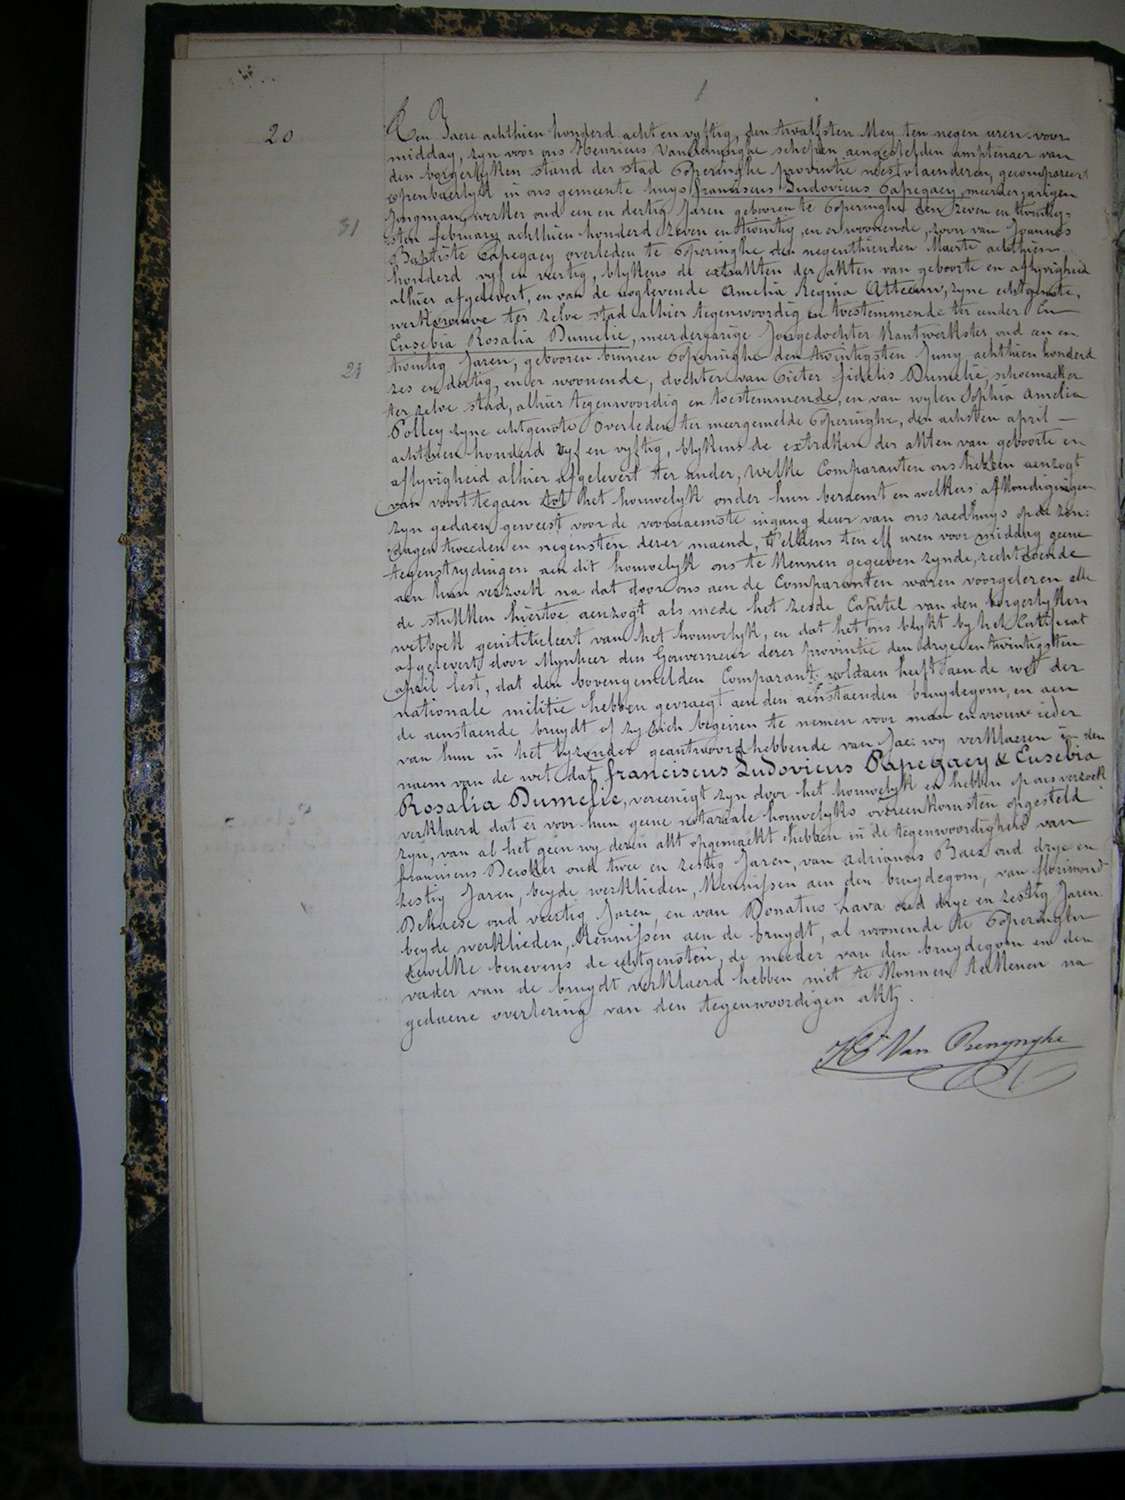 20
Den Jaere achthien honderd acht en vyftig, den twalfsten Mey ten negen uren voor
middag, zyn voor ons Henricus Vanrenynghe schepen aengestelden amptenaer van
den borgerlyken stand der stad Poperinghe provintie westvlaenderen, gecompareert
openbaerlyk in ons gemeente huys franciscus Ludovicus Papegaey, meerderjarigen
jongman, werker oud een en dertig Jaren gebooren te Poperinghe den zeven en twintig-
31
sten february achthien honderd zeven en twintig, en er woonende, zoon van Joannes
Baptiste Papegaey overleden te Poperinghe den negenthienden Maerte achthien
honderd vyf en veertig, blykens de extrakten der akten van geboorte en aflyvigheid
alhier afgelevert, en van de nog levende Amelia Regina Atteeuw, zyne echtgenote,
werkvrouwe ter zelve stad alhier tegenwoordig en toestemmende ter eender En
Eusebia Rosalia Dumelie, meerderjarige Jongedochter Kantwerkster, oud een en
21
twintig Jaren, gebooren binnen Poperinghe den twintigsten Juny achthien honderd
zes en dertig, en er woonende, dochter van Pieter fidelis Dumelie schoemaeker
ter zelve stad, alhier tegenwoordig en toestemmende, en van wylen Sophia Amelia
Polley zyne echtgenote overleden ter meergemelde Poperinghe, den achsten april
achthien honderd vyf en vyftig, blykens de extrakten der akten van geboorte en
aflyvigheid alhier afgelevert ter ander, welke Comparanten ons hebben aenzogt
van voort tegaen tot het houwelyk onder hun beraemt en welkers afkondigingen
zyn gedaen geweest voor de voornaemste ingang deur van ons raedhuys op de zon-
dagen tweeden en negensten dezer maend, telkens ten elf uren voor middag geene
tegenstrydingen aen dit houwelyk ons te kennen gegeeven zynde, recht doende
aen hun verzoek na dat door ons aen de Comparanten waren voorgelezen alle
de stukken hiertoe aenzogt als mede het zesde Capitel van den borgerlyken
wetboek geintituleert van het houwelyk, en dat het ons blykt by het Certificat
afgelevert door Mynheer den Gouverneur dezer provintie den drye en twintigsten
april lest, dat den bovengemelden Comparant voldaen heeft aen de wet der
nationale militie hebben gevraegt aen den aenstaenden bruydegom, en aen
de aenstaende bruydt of zy zich begeiren te nemen voor man en vrouw ieder
van hun in het byzonder geantwoord hebbende van Jae: wy verklaeren in den
naem van de wet dat franciscus Ludovicus Papegaey & Eusebia
Rosalia Dumelie, vereenigt zyn door het houwelyk en hebben op ons verzoek
verklaerd dat er voor hun geene notariale houwelyks overeenkomsten opgesteld
zyn, van al het geen wy dezen akt opgemaekt hebben in de tegenwoordigheid van
franciscus oud twee en zestig Jaren, van adrianus Baes oud drye en
zestig Jaren, beyde werklieden, Kennissen aen den bruydegom, van florimond
Dehaese oud veertig Jaren, en van Donatus Lava oud drye en zestig Jaren
beyde werklieden, Kennissen aen de bruydt, al woonende te Poperinghe
dewelke benevens de echtgenoten, de moeder van den bruydegom en den
vader van de bruydt verklaerd hebben niet te konnen tekenen na
gedaene overlezing van den tegenwoordigen akt.
Van Renynghe